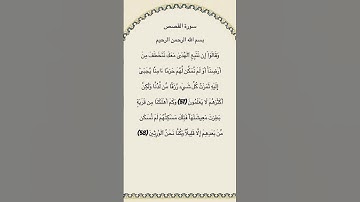 سورة القصص
بسم الله الرحمن الرحيم
وَقَالُوٓا۟ إِن نَّتَّبِعِ ٱلْهُدَىٰ مَعَكَ نُتَخَطَّفْ مِنْ
أَرْضِنَآ أَوَلَمْ نُمَكِّن لَّهُمْ حَرَمًا ءَامِنًا يُجْبَىٰٓ
إِلَيْهِ ثَمَرَٰتُ كُلِّ شَىْءٍ رِّزْقًا مِّن لَّدُنَّا وَلَٰكِنَّ
أَكْثَرَهُمْ لَا يَعْلَمُونَ (57) وَكَمْ أَهْلَكْنَا مِن قَرْيَةٍۭ
بَطِرَتْ مَعِيشَتَهَا فَتِلْكَ مَسَٰكِنُهُمْ لَمْ تُسْكَن
مِّنۢ بَعْدِهِمْ إِلَّا قَلِيلًا وَكُنَّا نَحْنُ ٱلْوَٰرِثِينَ (58)